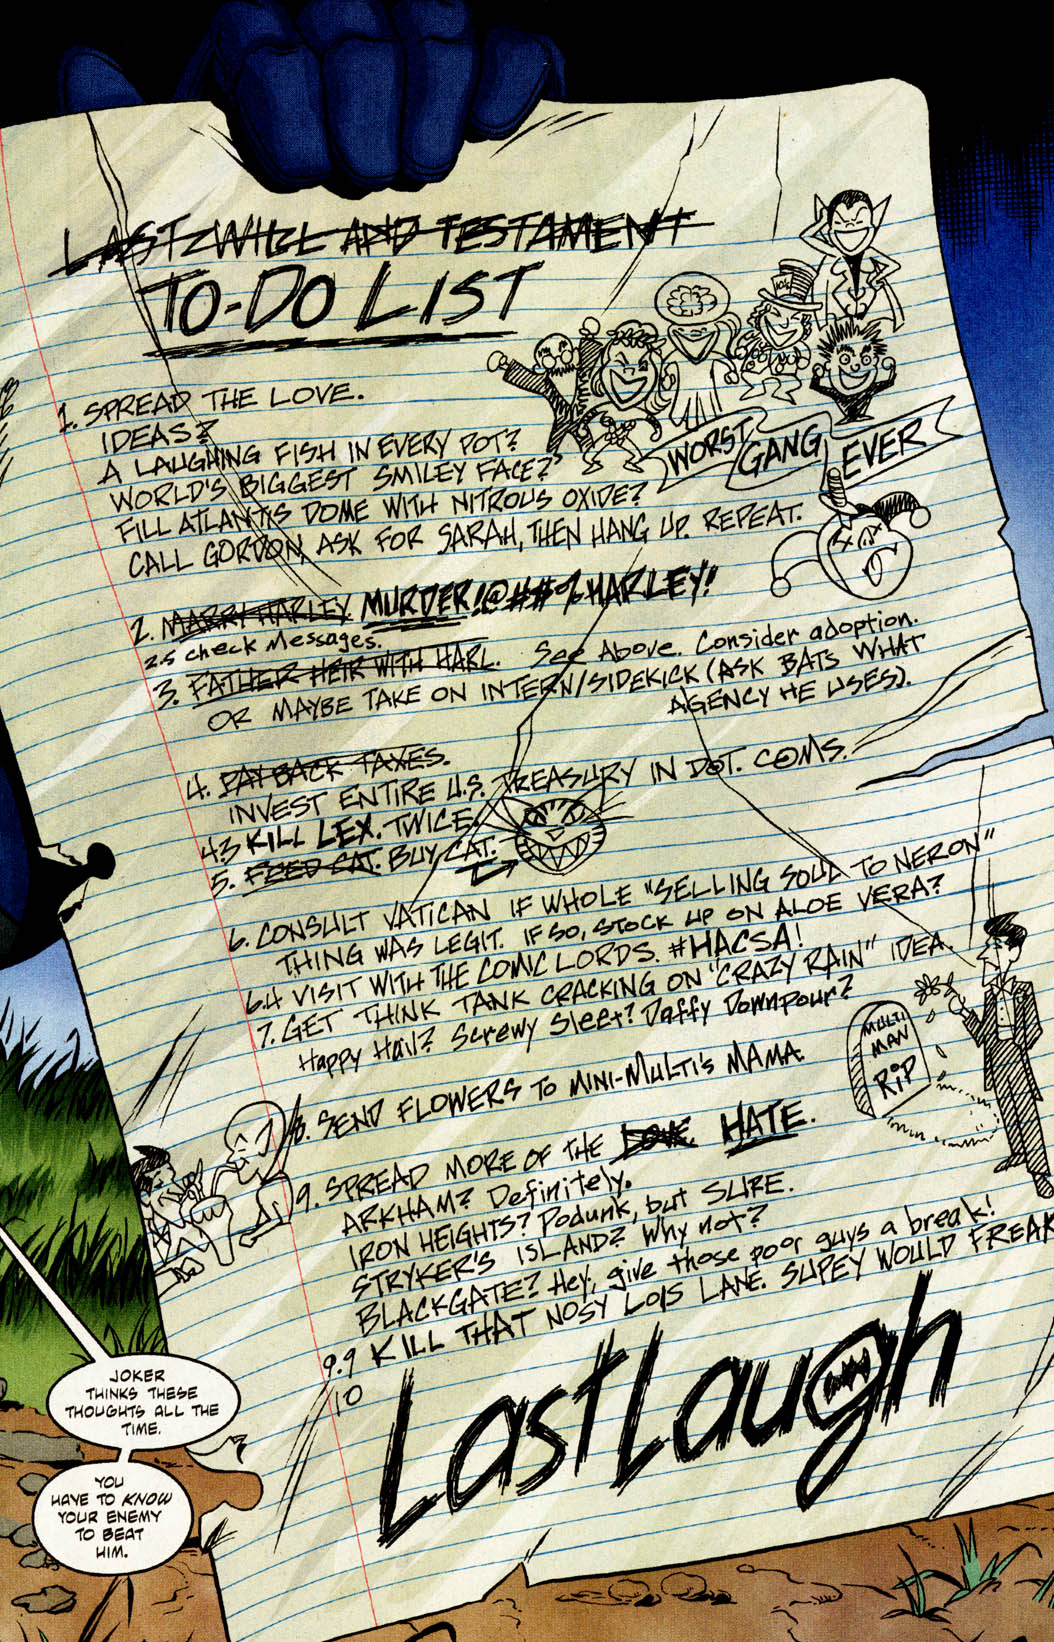 LAST WILL AND TESTAMENT
TO-DO LIST
1. SPREAD THE LOVE.
IDEAS?
A LAUGHING FISH IN EVERY POT?
WORLD'S BIGGEST SMILEY FACE?
FILL ATLANTIS DOME WITH NITROUS OXIDE?
CALL GORDON, ASK FOR SARAH, THEN HANG UP. REPEAT.
WORST GANG EVER
2. MARRY HARLEY. MURDER!@##% HARLEY!
2.5 check Messages.
3. FATHER HEIR WITH HARL. See Above. Consider adoption.
OR MAYBE TAKE ON INTERN/SIDEKICK (ASK BATS WHAT
AGENCY HE USES).
4. PAY BACK TAXES.
INVEST ENTIRE U.S. TREASURY IN DOT. COMS.
4.3 KILL LEX. TWICE.
5. FEED CAT. BUY CAT.
6. CONSULT VATICAN IF WHOLE "SELLING SOUL TO NERON"
THING WAS LEGIT. IF SO, STOCK UP ON ALOE VERA?
6.4 VISIT WITH THE COMIC LORDS. #HACSA!
7. GET THINK TANK CRACKING ON "CRAZY RAIN" IDEA.
Happy Hail? Screwy Sleet? Daffy Downpour?
8. SEND FLOWERS TO MINI-MULTI'S MAMA.
MULTI
MAN
RIP
9. SPREAD MORE OF THE LOVE. HATE.
ARKHAM? Definitely.
IRON HEIGHTS? Podunk, but SURE.
STRYKER'S ISLAND? Why not?
BLACKGATE? Hey, give those poor guys a break!
9.9 KILL THAT NOSY LOIS LANE. SUPEY WOULD FREAK
10
Last Laugh
JOKER
THINKS THESE
THOUGHTS ALL THE
TIME.
YOU
HAVE TO KNOW
YOUR ENEMY
TO BEAT
HIM.